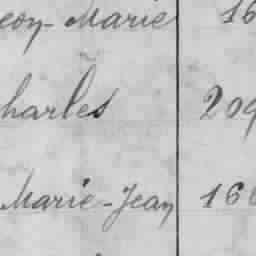 eoy-Marie 16
harles 209
Marie-Jean 166